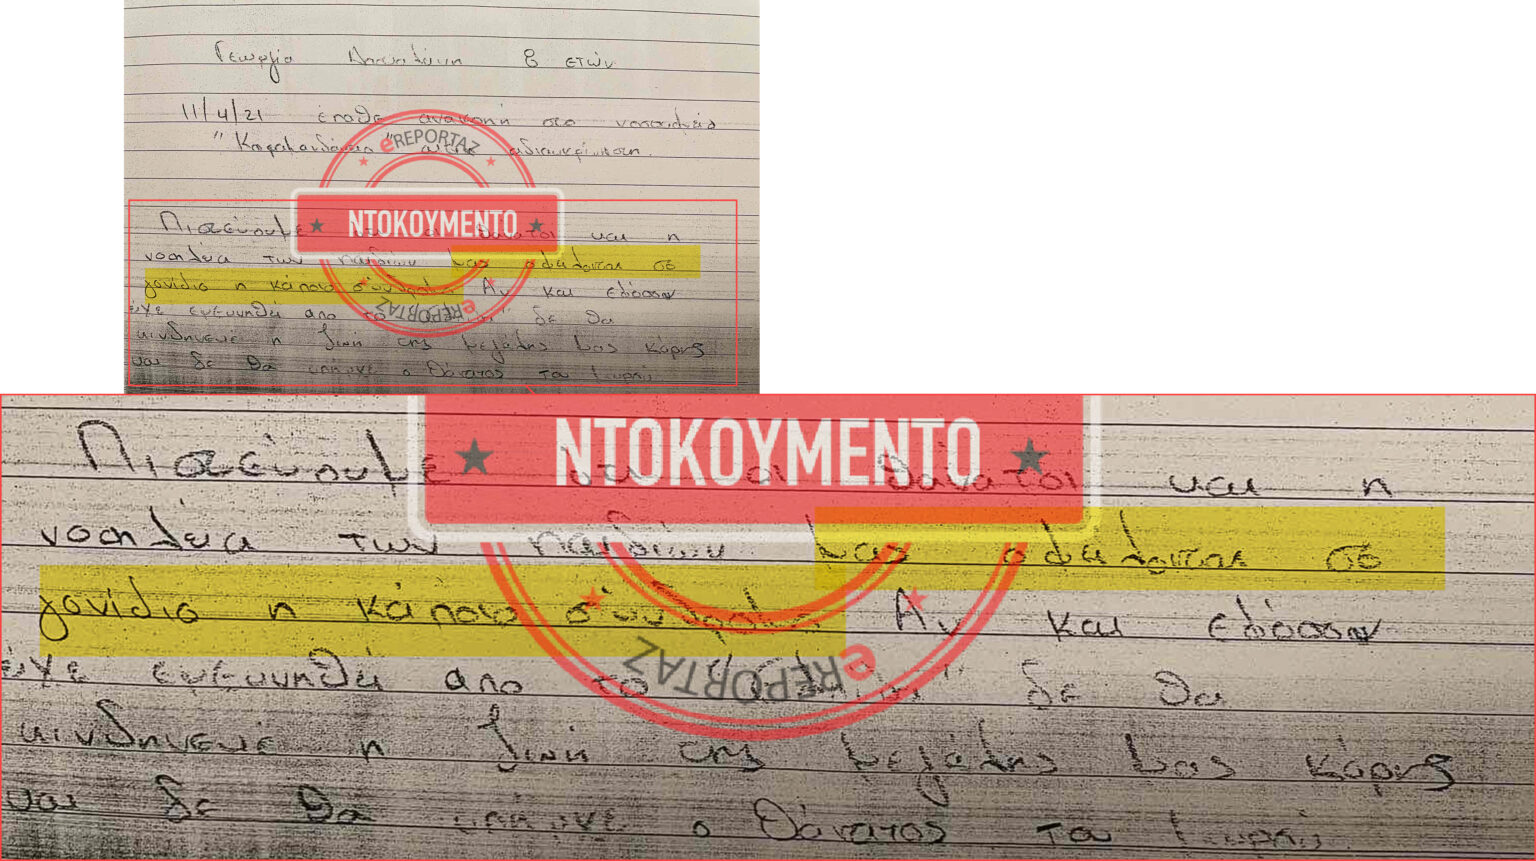 Γεωργία 8 ετών
11/4/21 έπαθε ανακοπή στο νοσοκομείο
"Καραμανδάνειο" αδιευκρίνιστη
eREPORTAZ
ΝΤΟΚΟΥΜΕΝΤΟ
Πιστεύουμε οτι οι θάνατοι και η
νοσηλεία των παιδιών μας οφείλονται σε
γονίδιο η κάποιο σύνδρομο Αν και εφόσον
είχε ερευνηθεί απο το δε θα
κινδήνευε η ζωή της μεγάλης μας κόρης
και δε θα υπήρχε ο θάνατος του
eREPORTAZ
ΝΤΟΚΟΥΜΕΝΤΟ
Πιστεύουμε οτι οι θάνατοι και η
νοσηλεία των παιδιών μας οφείλονται σε
γονίδιο η κάποιο σύνδρομο Αν και εφόσον
είχε ερευνηθεί απο το δε θα
κινδήνευε η ζωή της μεγάλης μας κόρης
και δε θα υπήρχε ο θάνατος του
eREPORTAZ